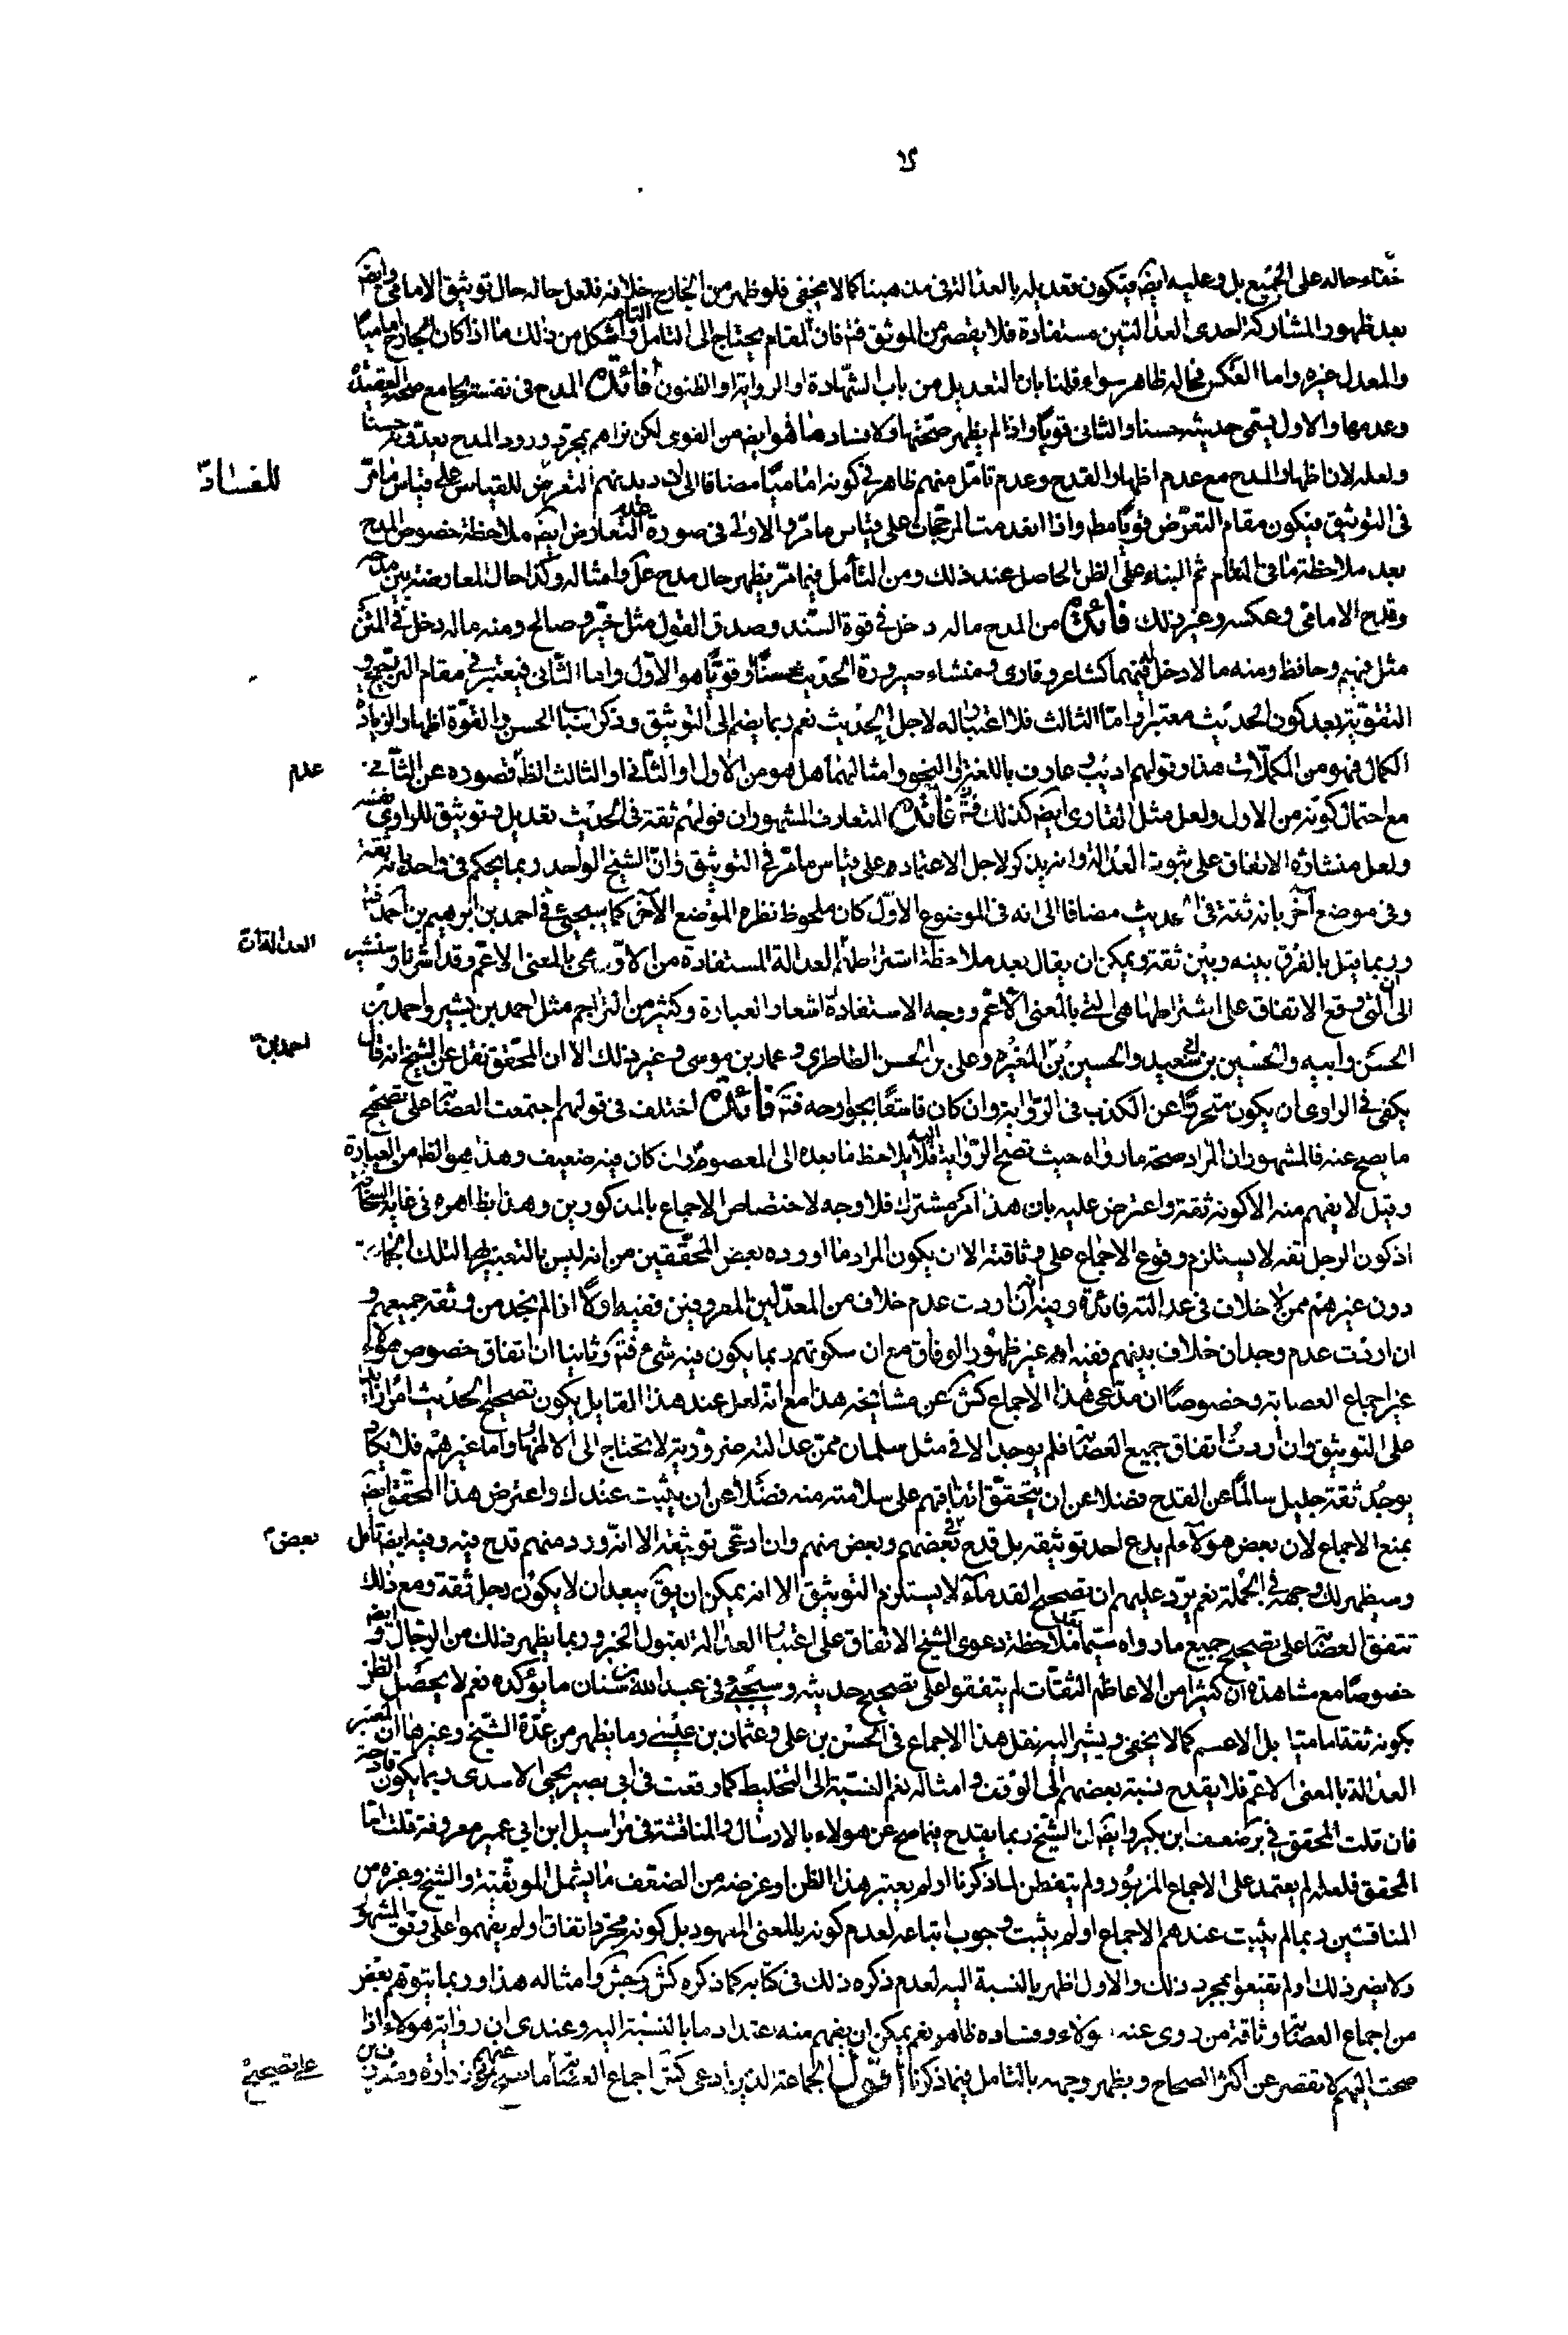 خفاء حاله على الجميع بل وعليه ايضًا فيكون تعديله بالعدالة في مذهبنا كما لا يخفى فلو ظهر من الخارج خلافه فلعل حاله حال توثيق الامامي وايضًا
بعد ظهور المشاركة احدى العدالتين مستفادة فلا يقصر عن الموثق فتم فان المقام يحتاج الى التامل التام واشكل من ذلك ما اذا كان الجارح اماميًا
والمعدل غيره واما العكس فحاله ظاهر سواء قلنا بان التعديل من باب الشهادة او الرواية او الظنون فائدة المدح في نفسه يجامع صحة العقيدة
وعدمها والاول يسمى حديثه حسنا والثاني قويًا واذا لم يظهر صحتها ولا فسادها فهو ايضا من القوى لكن نراهم بمجرد ورود المدح يعدونه حسنا
ولعله لان اظهار المدح مع عدم اظهار القدح وعدم تامل منهم ظاهر في كونه اماميًا مضافا الى ان ديدنهم التعرض للفساد على قياس ما مر
في التوثيق فيكون مقام التعرض قويًا مط واذا انعدمت المرجحات على قياس ما مر والاولى في صورة التعارض ايضا ملاحظة خصوص المدح
بعد ملاحظة ما في المقام ثم البناء على الظن الحاصل عند ذلك ومن التأمل فيما مر يظهر حال مدح عل وامثاله وكذا حال المعارضة بين مدحه
وقدح الامامي وعكسه وغير ذلك فائدة من المدح ماله دخل في قوة السند وصدق القول مثل خير وصالح ومنه ماله دخل في المتن
مثل فهيم وحافظ ومنه ما لا دخل له فيهما كشاعر وقارى ومنشاء صيرورة الحديث حسنًا او قويًا هو الاول واما الثاني فيعتبر في مقام الترجيح و
التقوية بعد كون الحديث معتبرا واما الثالث فلا اعتبار له لاجل الحديث نعم ربما يضم الى التوثيق وذكر اسباب الحسن والقوة اظهارا لزيادة
الكمال فهو من المكملات هذا وقولهم اديب او عارف باللغة او النحو وامثالهما هل هو من الاول او الثاني او الثالث الظ قصوره عن الثاني
عدم
مع احتمال كونه من الاول ولعل مثل القارى ايضا كذلك فتم فائدة المتعارف المشهور ان قولهم ثقة في الحديث تعديل وتوثيق للراوى نفسه
ولعل منشاؤه الاتفاق على ثبوت العدالة وانه يذكر لاجل الاعتماد على قياس ما مر في التوثيق وان الشيخ الواحد ربما يحكم في واحد بانه ثقة
وفي موضع آخر بانه ثقة في الحديث مضافا الى انه في الموضع الاول كان ملحوظ نظره الموضع الآخر كما سيجيء في احمد بن ابرهيم بن احمد فتم
وربما يقال بالفرق بينه وبين ثقة ويمكن ان يقال بعد ملاحظة اشتراطهم العدالة المستفادة من الاول هي بالمعنى الاعم وقد اشرنا وسنشير
الى التي وقع الاتفاق على اشتراطها هي التي بالمعنى الاعم ووجه الاستفادة اشعار العبارة وكثير من التراجم مثل احمد بن بشير واحمد بن
الحسن وابيه والحسين بن سعيد والحسين بن المغيره وعلى بن الحسن الطاطرى وعمار بن موسى وغير ذلك الا ان المحقق نقل عن الشيخ انه قال
يكفى في الراوى ان يكون متحرزًا عن الكذب في الرواية وان كان فاسقًا بجوارحه فتم فائدة اختلف في قولهم اجتمعت العصابة على تصحيح
ما يصح عنه فالمشهور ان المراد صحة ما رواه حيث تصح الرواية اليه فلا يلاحظ ما بعده الى المعصوم وان كان فيه ضعيف وهذا هو الظ من العبارة
وقيل لا يفهم منه الا كونه ثقة واعترض عليه بان هذا امر مشترك فلا وجه لاختصاص الاجماع بالمذكورين وهذا بظاهره في غاية السخافة
اذ كون الرجل ثقة لا يستلزم وقوع الاجماع على وثاقته الا ان يكون المراد ما اورده بعض المحققين من انه ليس بالتعبير بها لتلك الجماعة
دون غيرهم ممن لا خلاف في عدالته فائدة وفيه انه ان اردت عدم خلاف من المعدلين المعروفين ففيه اولًا انا لم نجد من وثقه جميعهم و
ان اردت عدم وجدان خلاف بينهم ففيه انه غير ظهور الوفاق مع ان سكوتهم ربما يكون فيه شيء فتم وثانيا ان اتفاق خصوص هؤلاء
غير اجماع العصابة وخصوصًا ان مدعى هذا الاجماع كش عن مشائخه هذا مع انه لعل عند هذا القايل يكون تصحيح الحديث امرا زائدا
على التوثيق وان اردت اتفاق جميع العصابة فلم يوجد الا في مثل سلمان ممن عدالته ضرورية لا تحتاج الى الاظهار واما غيرهم فلا يكاد
يوجد ثقة جليل سالمًا عن القدح فضلا عن ان يتحقق اتفاقهم على سلامته منه فضلا عن ان يثبت عندك واعترض هذا المحقق ايضا
بمنع الاجماع لان بعض هؤلاء لم يدع احد توثيقه بل قدح بعضهم في بعض وبعض منهم وان ادعى توثيقه الا انه ورد منهم قدح فيه وفيه ايضا تأمل
وسيظهر لك وجهه في الجملة نعم يرد عليهم ان تصحيح القدماء لا يستلزم التوثيق الا انه يمكن ان يق يبعد ان لا يكون رجل ثقة ومع ذلك
تتفق العصابة على تصحيح جميع ما رواه سيما بعد ملاحظة دعوى الشيخ الاتفاق على اعتبار العدالة لقبول الخبر وربما يظهر ذلك من الرجال ايضا و
خصوصًا مع مشاهدة ان كثيرا من الاعاظم الثقات لم يتفقوا على تصحيح حديثه وسيجيء في عبد الله بن سنان ما يؤكده نعم لا يحصل الظن
بكونه ثقة اماميا بل الاعم كما لا يخفى ويشير اليه نقل هذا الاجماع في الحسن بن على وعثمان بن عيسى وما يظهر من عدة الشيخ وغيرها ان المعتبر
العدالة بالمعنى الاعم فلا يقدح نسبة بعضهم الى الوقف وامثاله نعم النسبة الى التخليط كما وقعت في ابى بصير يحيى الاسدى ربما يكون قادحة
فان قلت المحقق في بر ضعف ابن بكير وايضا ان الشيخ ربما يقدح فيما صح عن هؤلاء بالارسال والمناقشة في مراسيل ابن ابى عمير معروفة قلت اما
المحقق فلعله لم يعتمد على الاجماع المزبور ولم يتفطن لما ذكرنا او لم يعتبر هذا الظن او غرضه من الضعف ما يشمل الموثقية والشيخ وغيره من
المناقشين ربما لم يثبت عندهم الاجماع او لم يثبت وجوب اتباعه لعدم كونه بالمعنى المعهود بل كونه مجرد اتفاق او لم يفهموا على وفق المشهور
ولا يضر ذلك او لم يقنعوا بمجرد ذلك والاول اظهر بالنسبة اليه لعدم ذكره ذلك في كتابه كما ذكره كش وجش وامثاله هذا وربما يتوهم بعض
من اجماع العصابة وثاقة من روى عنه هؤلاء وفساده ظاهر نعم يمكن ان يفهم منه اعتداد ما بالنسبة اليه وعندى ان رواية هؤلاء اذا
صحت اليهم لا تقصر عن اكثر الصحاح ويظهر وجهه بالتامل فيما ذكرنا اقول الجماعة الذين ادعى كش اجماع العصابة
على تصحيح